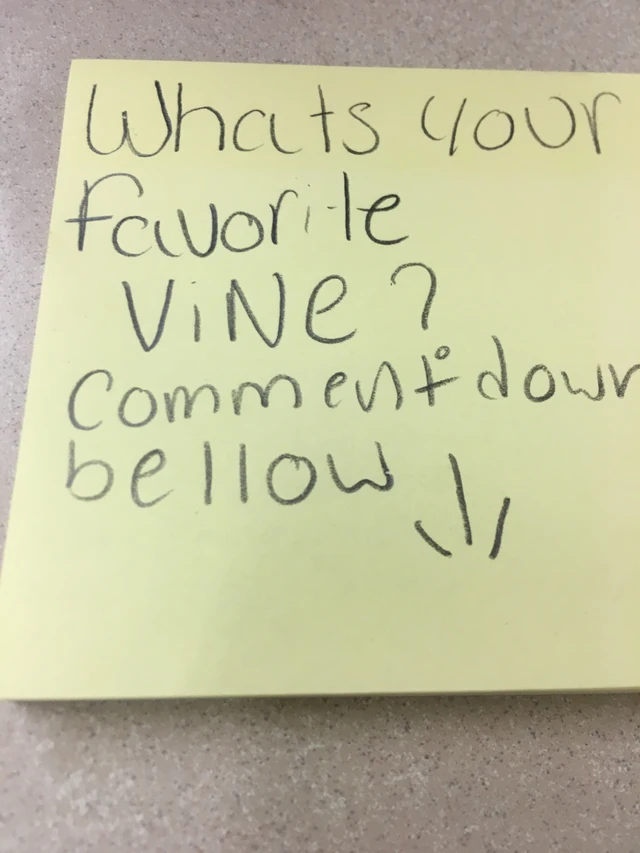 Whats your
favorite
ViNe?
comment down
bellow